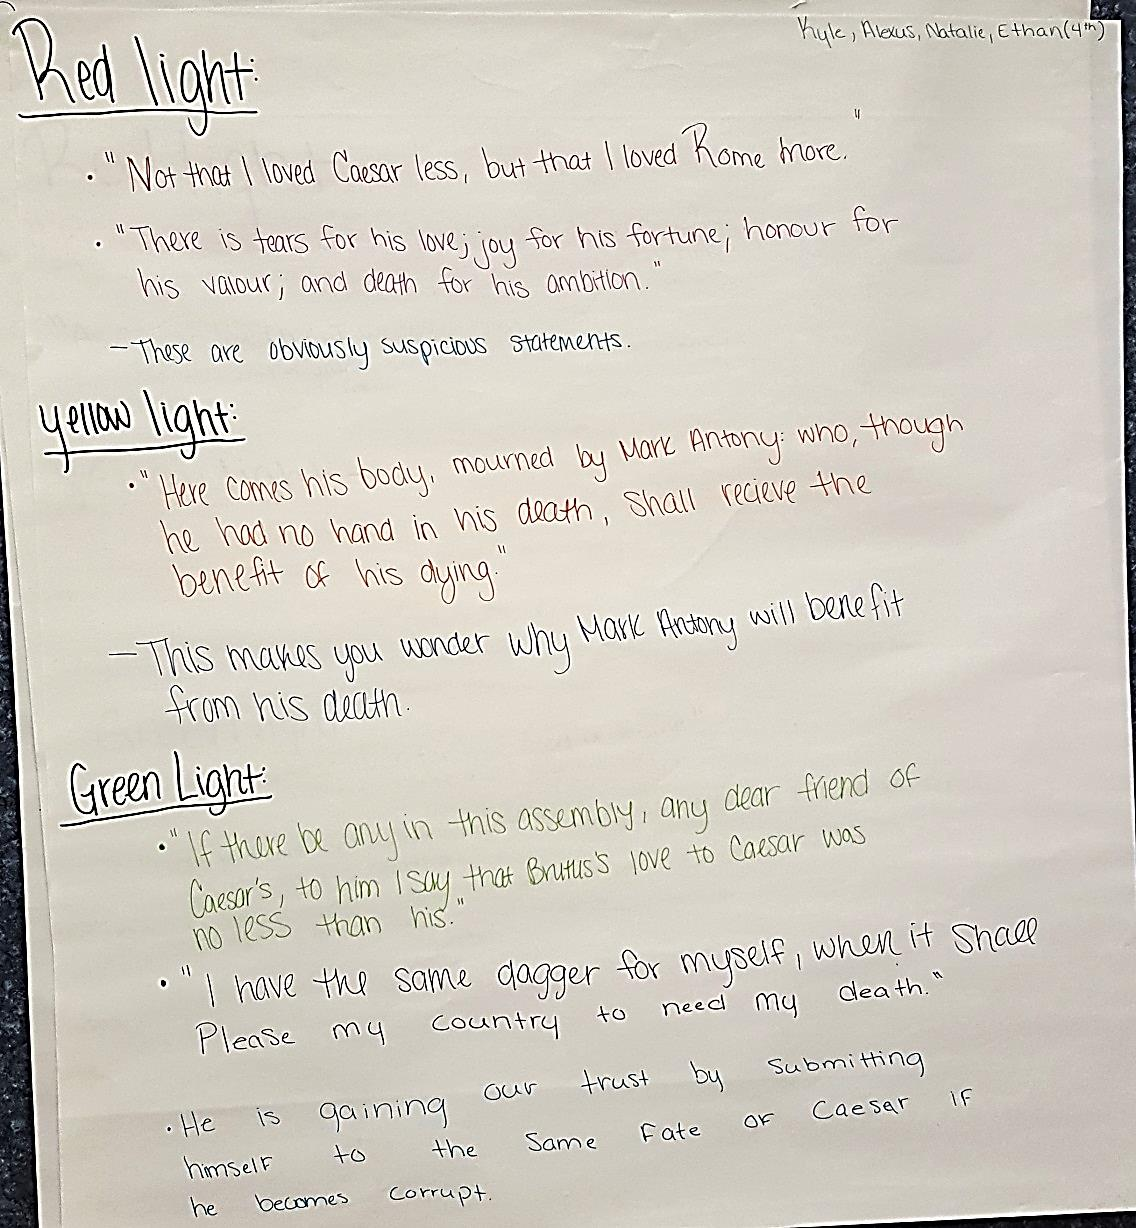 Kyle, Alexus, Natalie, Ethan (4th)
Red light:
• "Not that I loved Caesar less, but that I loved Rome more."
• "There is tears for his love; joy for his fortune; honour for
his valour; and death for his ambition."
- These are obviously suspicious statements.
yellow light:
• "Here comes his body, mourned by Mark Antony: who, though
he had no hand in his death, Shall recieve the
benefit of his dying."
- This makes you wonder why Mark Antony will benefit
from his death.
Green Light:
• "If there be any in this assembly, any dear friend of
Caesar's, to him I say that Brutus's love to Caesar was
no less than his."
• "I have the same dagger for myself, when it shall
Please my country to need my death."
• He is gaining our trust by submitting
himself to the same fate of Caesar if
he becomes corrupt.